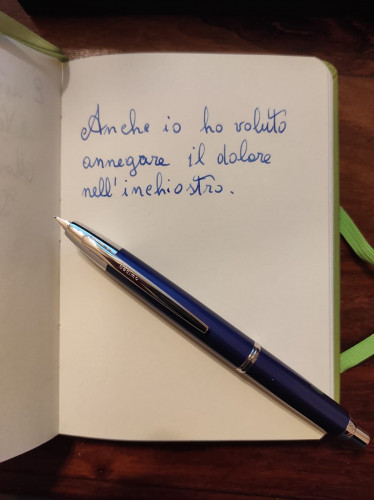 Anche io ho voluto
annegare il dolore
nell'inchiostro.